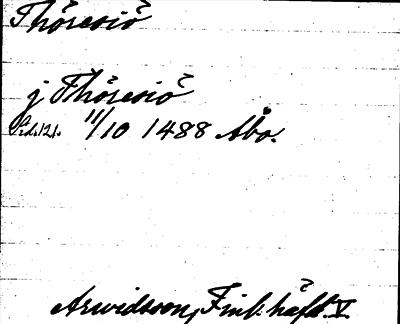 Thöresiö
j Thöresiö
Sid. 121. 11/10 1488 Åbo.
Arwidsson, Finl. häfd. V.